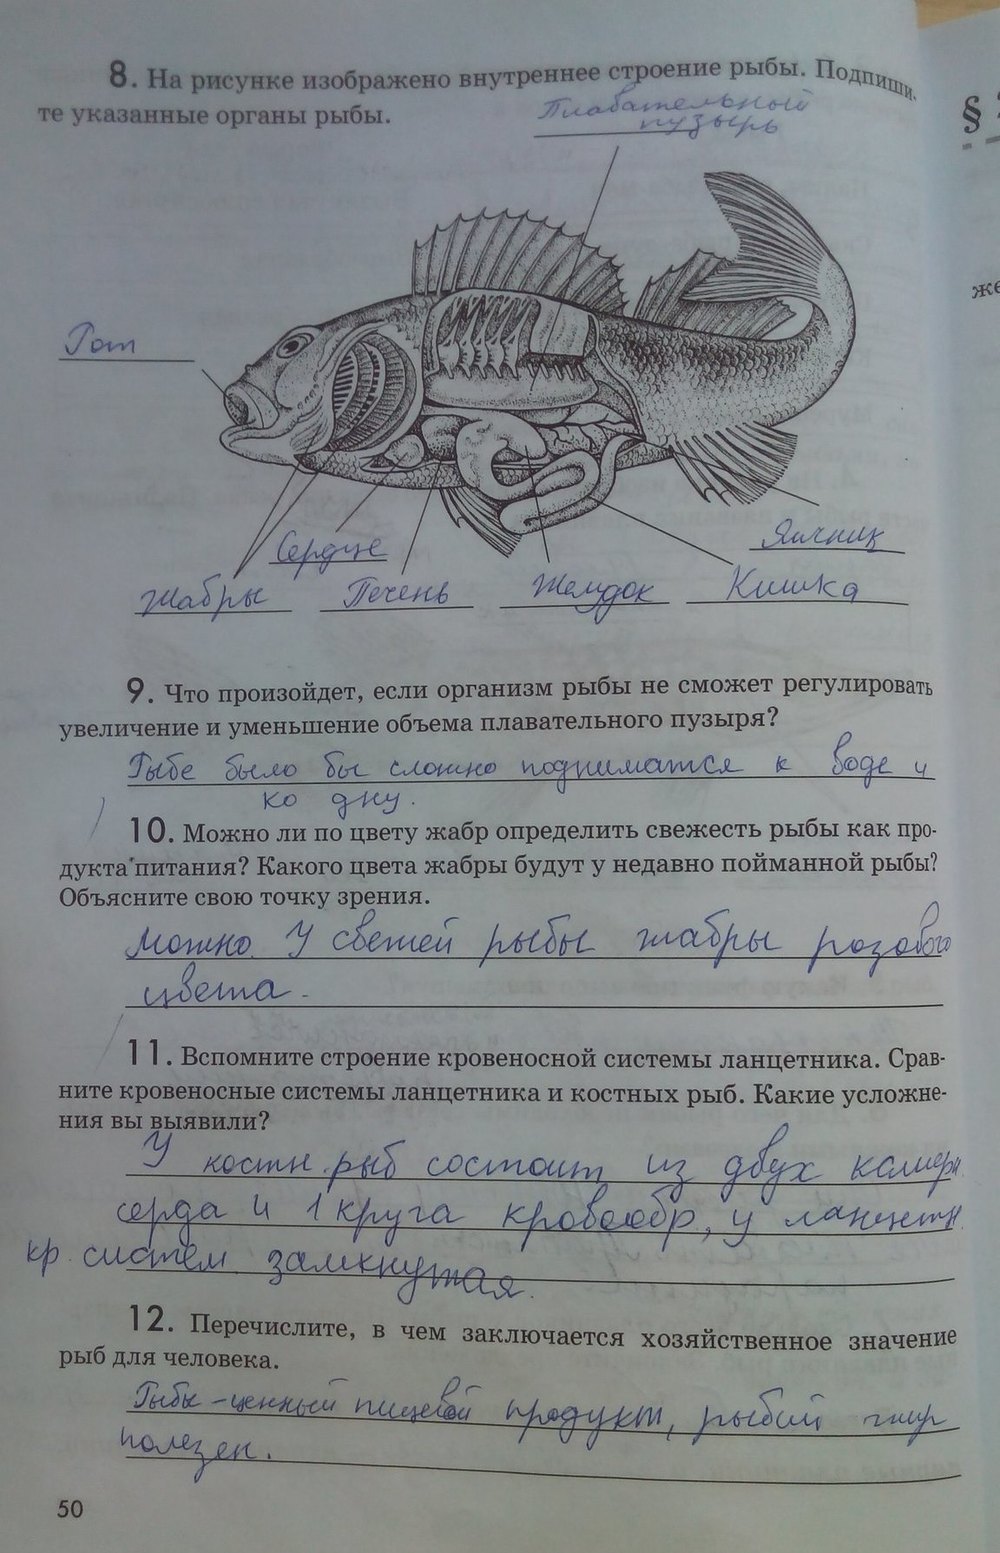 8. На рисунке изображено внутреннее строение рыбы. Подпиши-
те указанные органы рыбы.
Плавательный
пузырь
§
же
Рот
Сердце
Яичник
Жабры Печень Желудок Кишка
9. Что произойдет, если организм рыбы не сможет регулировать
увеличение и уменьшение объема плавательного пузыря?
Рыбе было бы сложно подниматся к воде и
ко дну.
10. Можно ли по цвету жабр определить свежесть рыбы как про-
дукта питания? Какого цвета жабры будут у недавно пойманной рыбы?
Объясните свою точку зрения.
Можно. У свежей рыбы жабры розового
цвета.
11. Вспомните строение кровеносной системы ланцетника. Срав-
ните кровеносные системы ланцетника и костных рыб. Какие усложне-
ния вы выявили?
У костн. рыб состоит из двух камерн.
серда и 1 круга кровообр, у ланцетн.
кр. систем замкнутая.
12. Перечислите, в чем заключается хозяйственное значение
рыб для человека.
Рыбы - ценный пищевой продукт, рыбий жир
полезен.
50